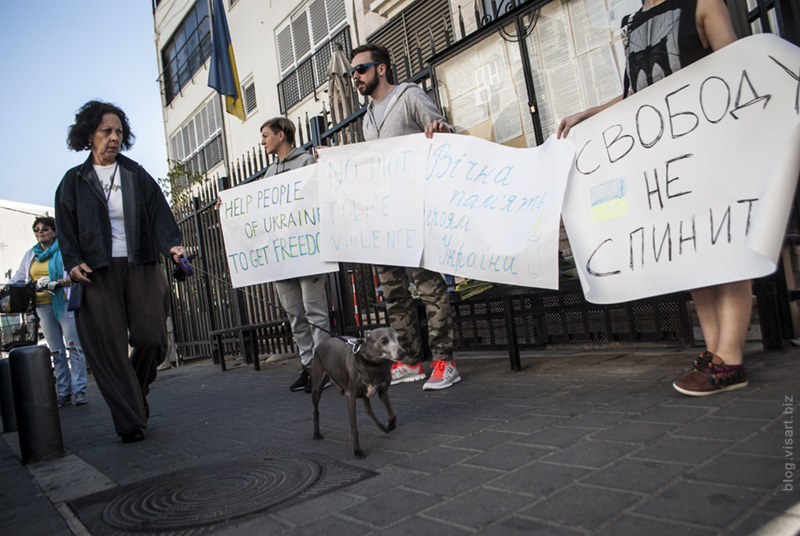 HELP PEOPLE
OF UKRAINE
TO GET FREEDOM
NO RIOT
POLICE
VIOLENCE
Вічна
память
героям
України
СВОБОДУ
НЕ
СПИНИТ
blog.visart.biz